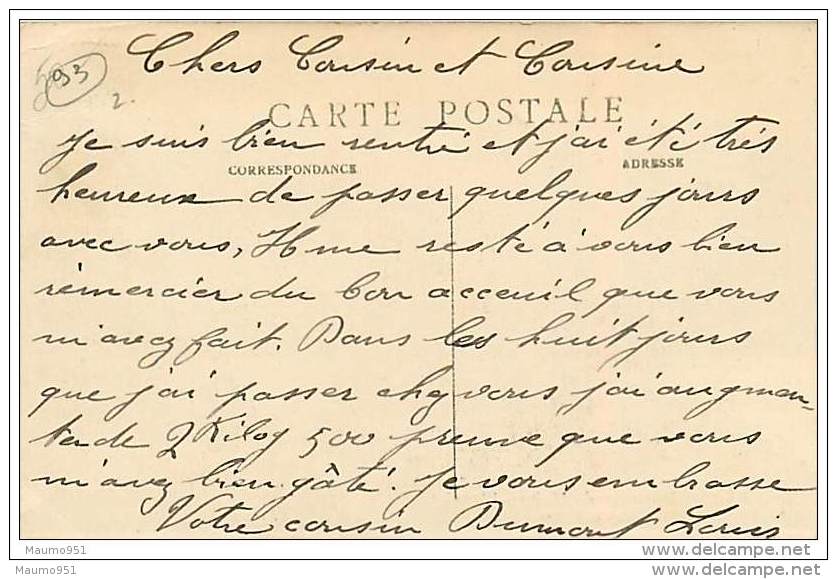 93
2.
Chers Cousin et Cousine
CARTE POSTALE
Je suis bien rentré et j'ai été très
CORRESPONDANCE
ADRESSE
heureux de passer quelques jours
avec vous, Il me reste à vous bien
remercier du bon acceuil que vous
m'avez fait. Dans les huit jours
que j'ai passer chez vous j'ai augmen-
ter de 2 Kilog 500 preuve que vous
m'avez bien gâté. Je vous embrasse
Votre cousin Dumont Louis
Maumo951
Maumo951
delcampe.net
delcampe.net